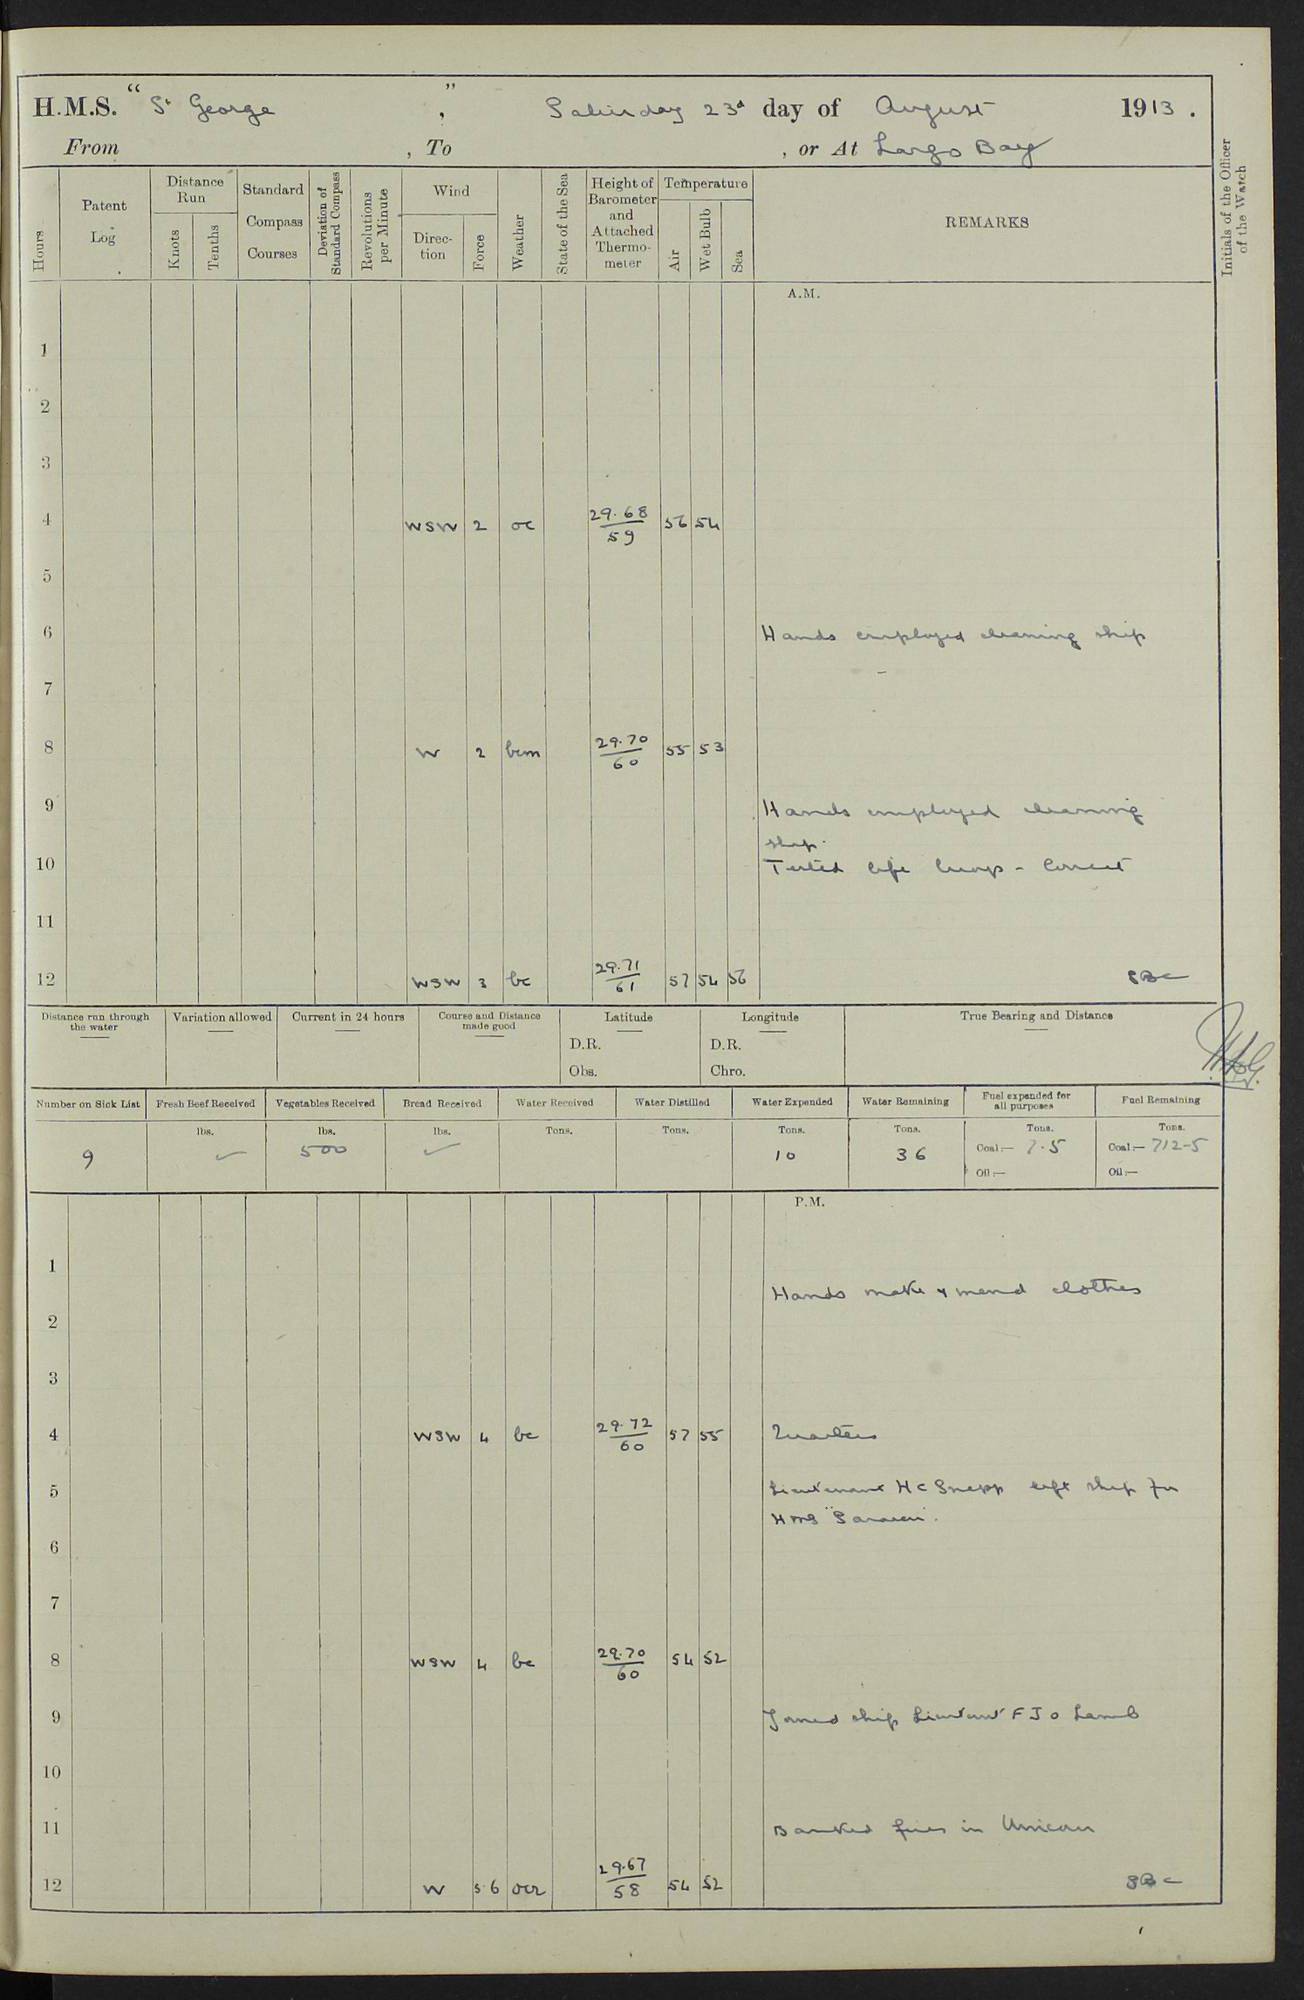 H.M.S. “ St George ” , Saturday 23d day of August 1913 .
From , To , or At Largo Bay
Hours
Patent Log
Distance Run
Knots
Tenths
Standard Compass Courses
Deviation of Standard Compass
Revolutions per Minute
Wind
Direction
Force
Weather
State of the Sea
Height of Barometer and Attached Thermometer
Temperature
Air
Wet Bulb
Sea
REMARKS
Initials of the Officer of the Watch
A.M.
1
2
3
4 WSW 2 oc 29.68/59 56 54
5
6 Hands employed cleaning ship
7
8 W 2 bcm 29.70/60 55 53
9 Hands employed cleaning
ship.
10 Tested life buoys - Correct
11
12 WSW 3 bc 29.71/61 57 54 56 SBC
Distance run through the water
Variation allowed
Current in 24 hours
Course and Distance made good
Latitude
D.R.
Obs.
Longitude
D.R.
Chro.
True Bearing and Distance
Number on Sick List
9
Fresh Beef Received
lbs.
✓
Vegetables Received
lbs.
500
Bread Received
lbs.
✓
Water Received
Tons.
Water Distilled
Tons.
Water Expended
Tons.
10
Water Remaining
Tons.
36
Fuel expended for all purposes
Tons.
Coal:— 7.5
Oil:—
Fuel Remaining
Tons.
Coal:— 712-5
Oil:—
P.M.
1
Hands make & mend clothes
2
3
4 WSW 4 bc 29.72/60 57 55 Quarters
5 Lieutenant H C Snepp left ship for
HMS
6
7
8 WSW 4 bc 29.70/60 54 52
9 Joined ship Lieutenant F J O Lamb
10
11 Banked fires in
12 W 5.6 ocr 29.67/58 54 52 SBC